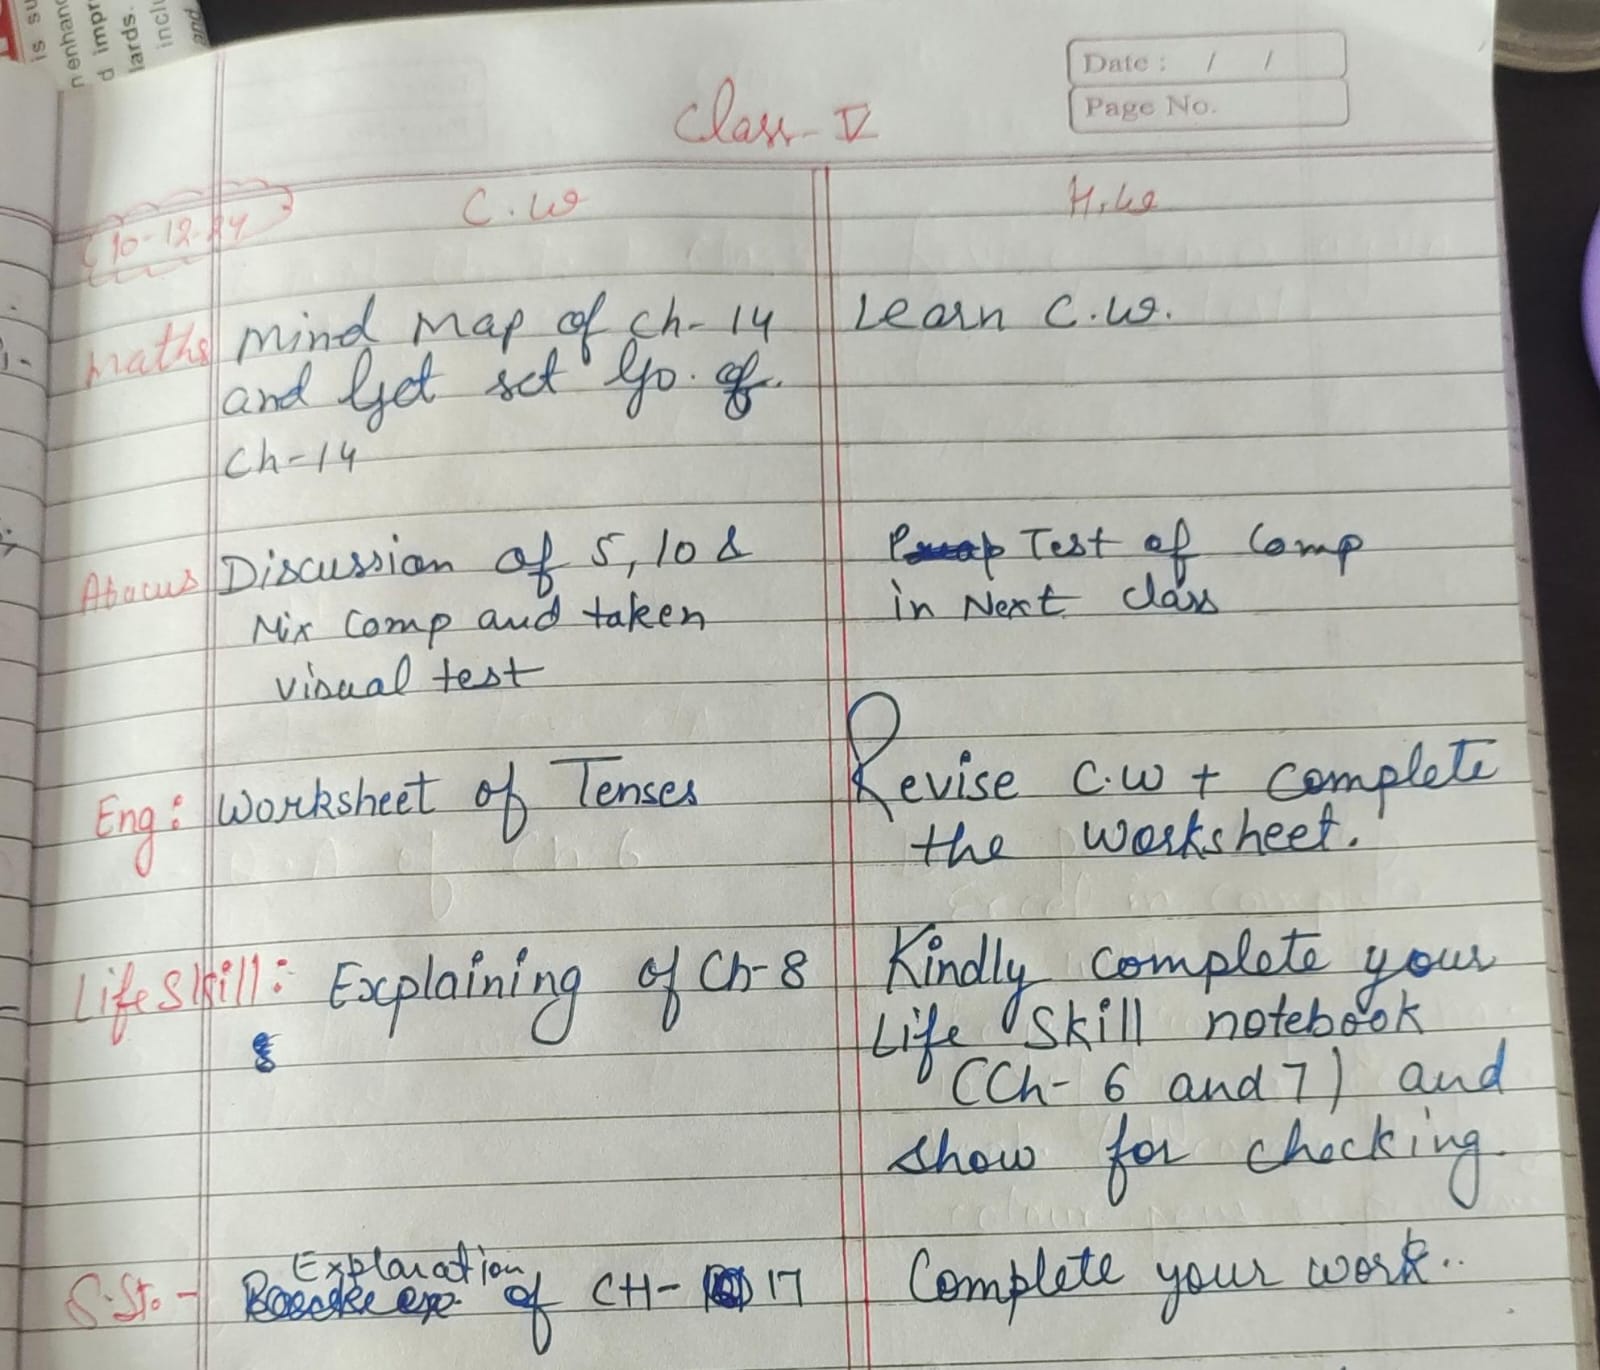 is su
n enhanc
d impr
lards.
inclu
and
Date : / /
Page No.
Class-V
10-12-24
C.W
H.W
Maths
Mind Map of ch-14
and Get set Go. of.
Ch-14
Learn C.W.
Abacus
Discussion of 5, 10 &
Mix Comp and taken
visual test
Test of Comp
in Next class
Eng:
Worksheet of Tenses
Revise C.W + complete
the worksheet.
Life Skill:
Explaining of Ch-8
Kindly complete your
Life Skill notebook
(Ch- 6 and 7) and
show for checking.
S.St. -
Explanation
of CH- 17
Complete your work..